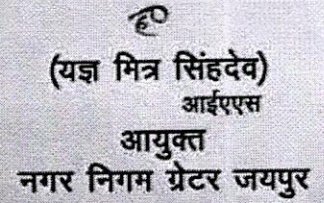 ह०
(यज्ञ मित्र सिंहदेव)
आईएएस
आयुक्त
नगर निगम ग्रेटर जयपुर